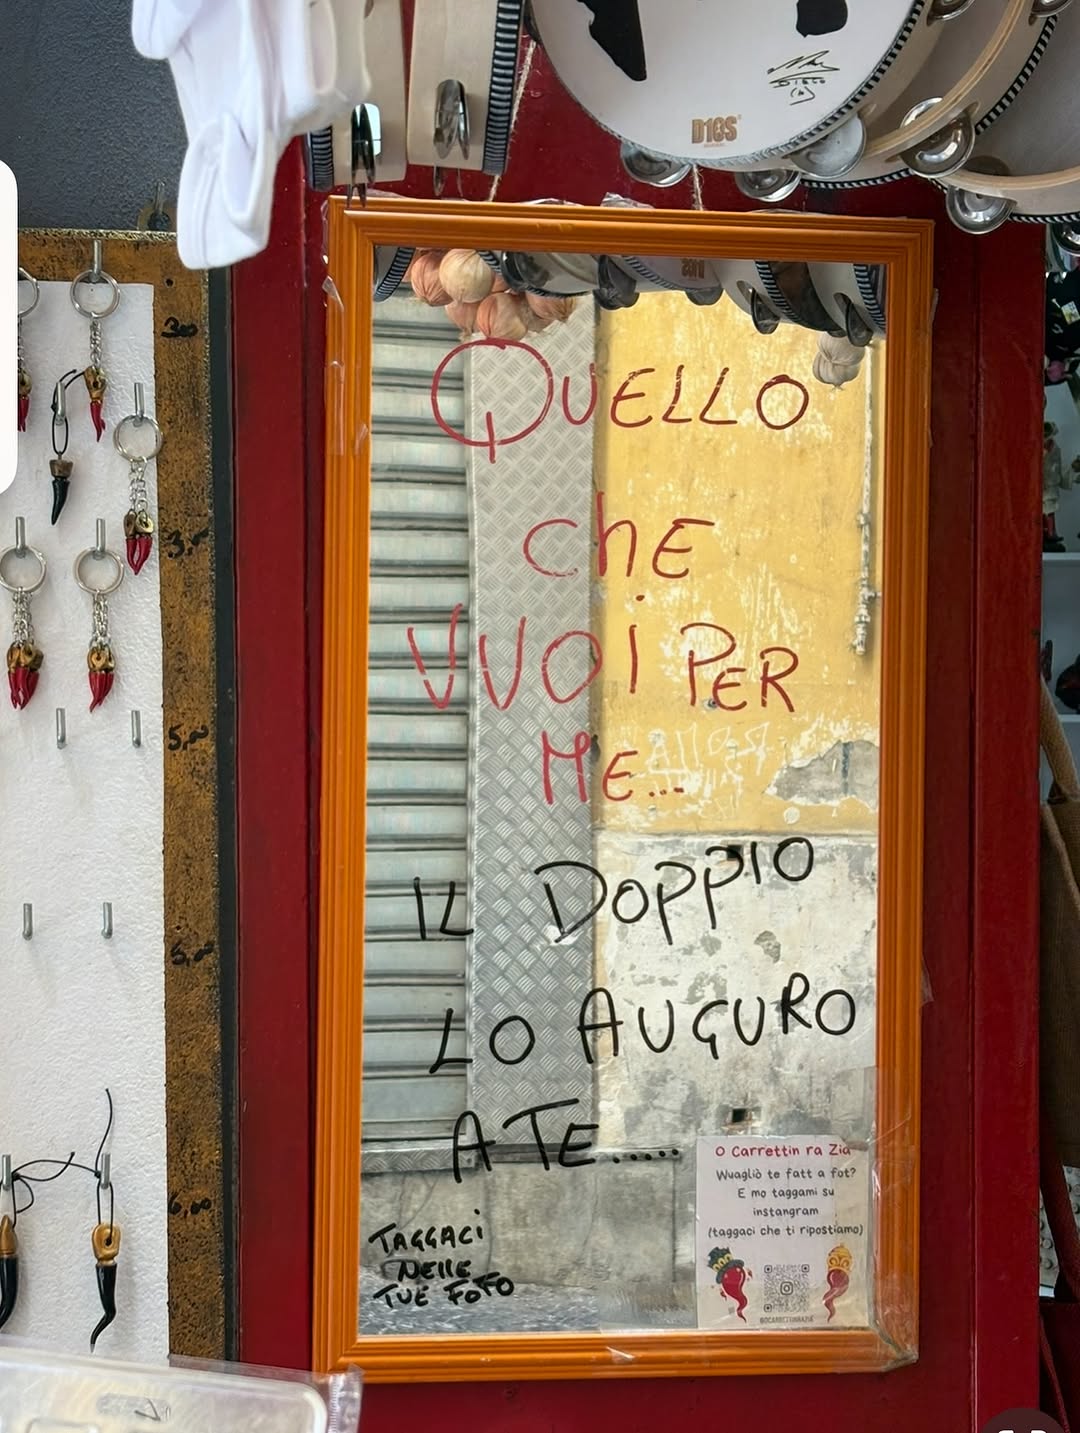 DIEGO
(10)
D10S
3,00
3,00
5,00
5,00
6,00
QUELLO
chE
VUOi PER
ME...
IL DOPPIO
LO AUGURO
A TE.....
TAGGACi
NELLE
TUE FOTO
O Carrettin ra Zia
Wuagliò te fatt a fot?
E mo taggami su
instangram
(taggaci che ti ripostiamo)
@OCARRETTINRAZIA